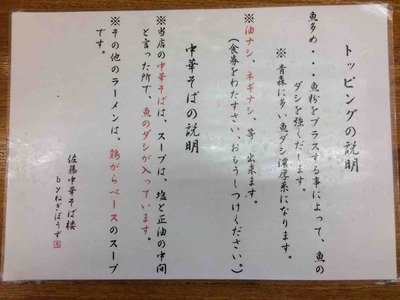 トッピングの説明
魚多め・・・魚粉をプラスする事によって、魚の
ダシを強くだします。
※青森に多い魚ダシ濃厚系になります。
※油ナシ、ネギナシ、等、出来ます。
(食券をわたすさい、おもうしつけください。)
中華そばの説明
※当店の中華そばは、スープは、塩と正油の中間
と言った所で、魚のダシが入っています。
※その他のラーメンは、鶏がらベースのスープ
です。
佐藤中華そば楼
byねぎぼうず